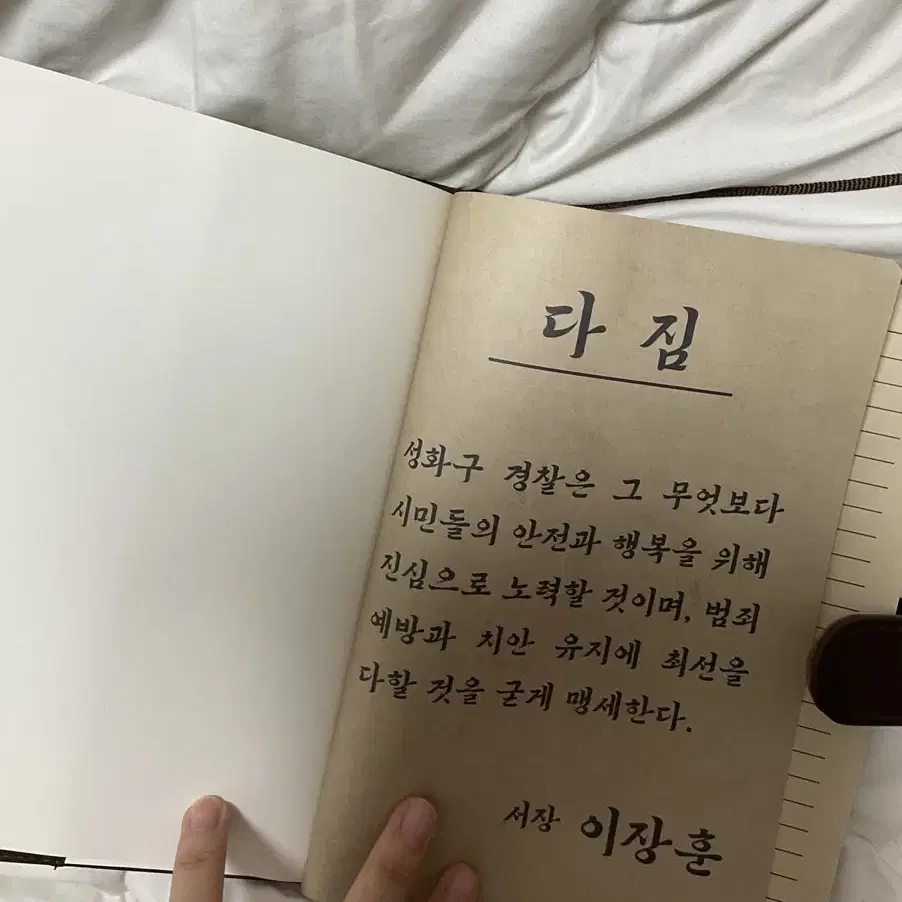 다 짐
성화구 경찰은 그 무엇보다
시민들의 안전과 행복을 위해
진심으로 노력할 것이며, 범죄
예방과 치안 유지에 최선을
다할 것을 굳게 맹세한다.
서장 이장훈